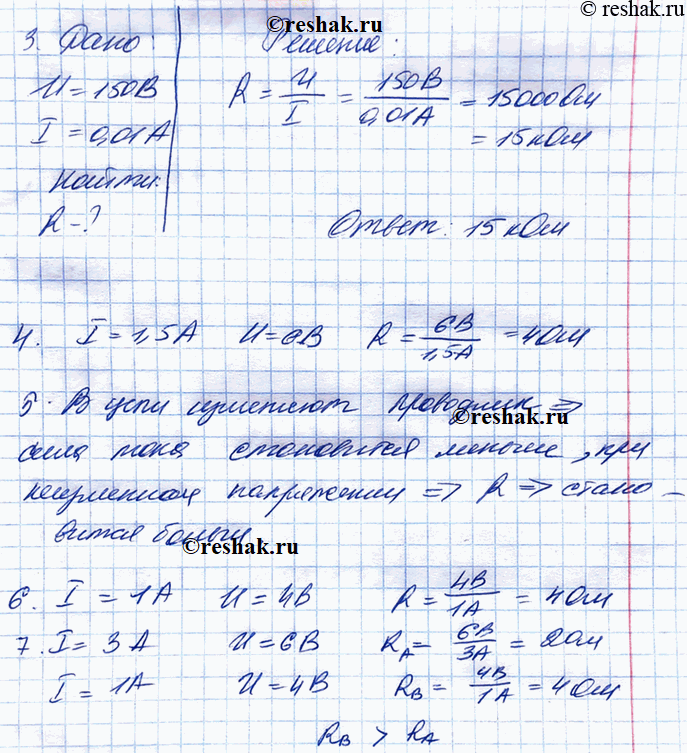 © reshak.ru
3. Дано: Решение:
U = 150В R = U/I = 150В/0,01А = 15000 Ом
I = 0,01А = 15 кОм
Найти:
R - ? Ответ: 15 кОм
4. I = 1,5А U = 6В R = 6В/1,5А = 4 Ом
©reshak.ru
5. В цепи изменяют проводник ⇒
сила тока становится меньше, при
неизменном напряжении ⇒ R ⇒ стано-
вится больше
©reshak.ru
6. I = 1А U = 4В R = 4В/1А = 4 Ом
7. I = 3А U = 6В R_A = 6В/3А = 2 Ом
I = 1А U = 4В R_B = 4В/1А = 4 Ом
R_B > R_A